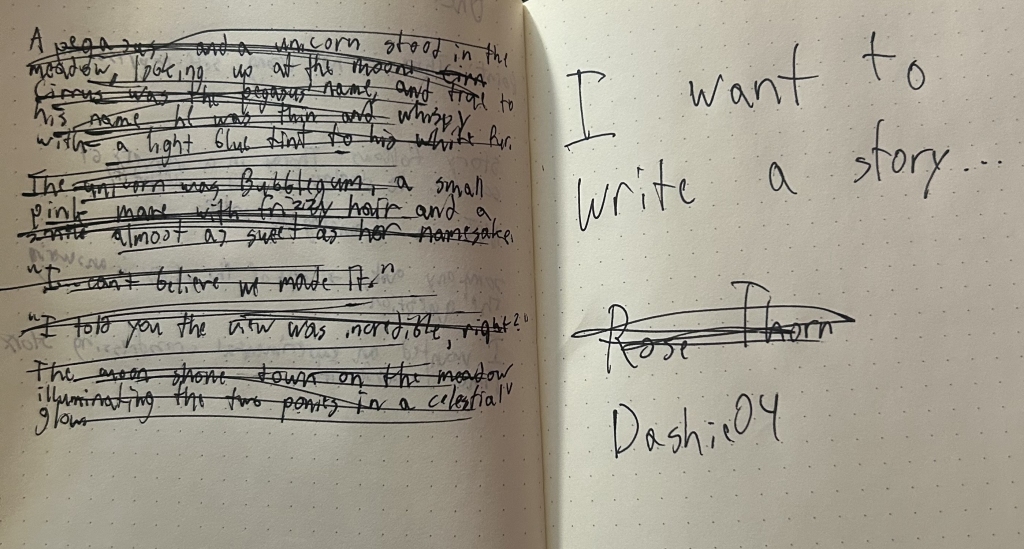 A pegasus and a unicorn stood in the
meadow, looking up at the moon.
Cirrus was the pegasus name, and true to
his name he was thin and whispy
with a light blue tint to his white fur.
The unicorn was Bubblegum, a small
pink mare with frizzy hair and a
smile almost as sweet as her namesake.
"I can't believe we made it."
"I told you the view was incredible, right?"
The moon shone down on the meadow
illuminating the two ponies in a celestial
glow
I want to
write a story...
Rose Thorn
Dashie04